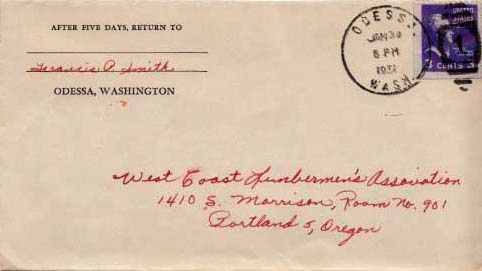 AFTER FIVE DAYS, RETURN TO
Francis O. Smith
ODESSA, WASHINGTON
ODESSA
JAN 30
8 PM
WASH.
UNITED
STATES
3 CENTS 3
West Coast Lumbermen's Association
1410 S. Morrison, Room No. 901
Portland 5, Oregon